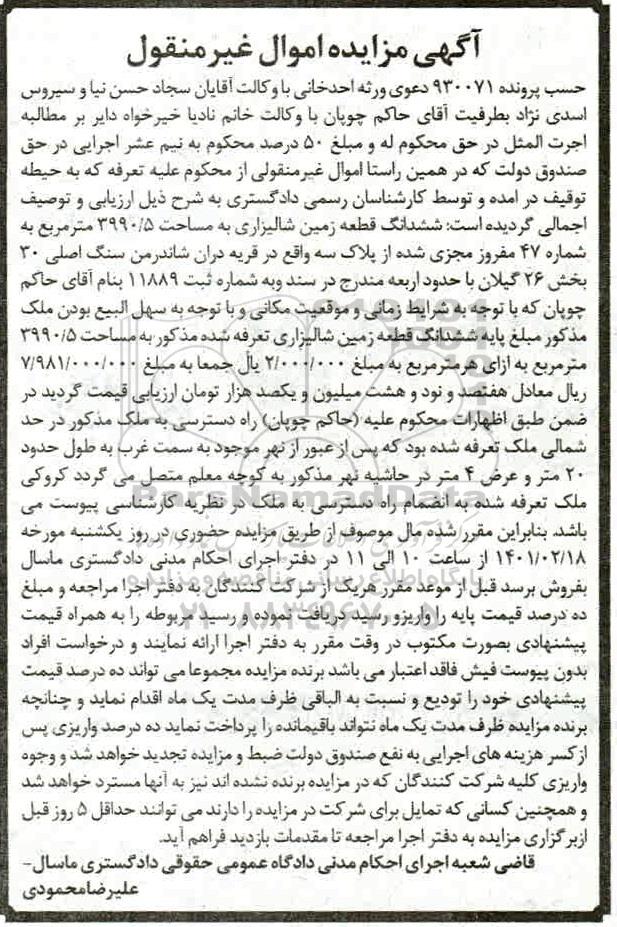 آگهی مزایده اموال غیر منقول
حسب پرونده ۹۳۰۰۷۱ دعوی ورثه احدخانی با وکالت آقایان سجاد حسن نیا و سیروس
اسدی نژاد بطرفیت آقای حاکم چوپان با وکالت خانم نادیا خیرخواه دایر بر مطالبه
اجرت المثل در حق محکوم له و مبلغ ۵۰ درصد محکوم به نیم عشر اجرایی در حق
صندوق دولت که در همین راستا اموال غیرمنقولی از محکوم علیه تعرفه که به حیطه
توقیف در امده و توسط کارشناسان رسمی دادگستری به شرح ذیل ارزیابی و توصیف
اجمالی گردیده است: ششدانگ قطعه زمین شالیزاری به مساحت ۳۹۹۰/۵ مترمربع به
شماره ۴۷ مفروز مجزی شده از پلاک سه واقع در قریه دران شاندرمن سنگ اصلی ۳۰
بخش ۲۶ گیلان با حدود اربعه مندرج در سند وبه شماره ثبت ۱۱۸۸۹ بنام آقای حاکم
چوپان که با توجه به شرایط زمانی و موقعیت مکانی و با توجه به سهل البیع بودن ملک
مذکور مبلغ پایه ششدانگ قطعه زمین شالیزاری تعرفه شده مذکور به مساحت ۳۹۹۰/۵
مترمربع به ازای هرمترمربع به مبلغ ۲/۰۰۰/۰۰۰ یال جمعا به مبلغ ۷/۹۸۱/۰۰۰/۰۰۰
ریال معادل هفتصد و نود و هشت میلیون و یکصد هزار تومان ارزیابی قیمت گردید در
ضمن طبق اظهارات محکوم علیه (حاکم چوپان) راه دسترسی به ملک مذکور در حد
شمالی ملک تعرفه شده بود که پس از عبور از نهر موجود به سمت غرب به طول حدود
۲۰ متر و عرض ۴ متر در حاشیه نهر مذکور به کوچه معلم متصل می گردد کروکی
ملک تعرفه شده به انضمام راه دسترسی به ملک در نظریه کارشناسی پیوست می
باشد. بنابراین مقرر شده مال موصوف از طریق مزایده حضوری در روز یکشنبه مورخه
۱۴۰۱/۰۲/۱۸ از ساعت ۱۰ الی ۱۱ در دفتر اجرای احکام مدنی دادگستری ماسال
بفروش برسد قبل از موعد مقرر هریک از شرکت کنندگان به دفتر اجرا مراجعه و مبلغ
ده درصد قیمت پایه را واریز و رسید دریافت نموده و رسید مربوطه را به همراه قیمت
پیشنهادی بصورت مکتوب در وقت مقرر به دفتر اجرا ارائه نمایند و درخواست افراد
بدون پیوست فیش فاقد اعتبار می باشد برنده مزایده مجموعا می تواند ده درصد قیمت
پیشنهادی خود را تودیع و نسبت به الباقی ظرف مدت یک ماه اقدام نماید و چنانچه
برنده مزایده ظرف مدت یک ماه نتواند باقیمانده را پرداخت نماید ده درصد واریزی پس
از کسر هزینه های اجرایی به نفع صندوق دولت ضبط و مزایده تجدید خواهد شد و وجوه
واریزی کلیه شرکت کنندگان که در مزایده برنده نشده اند نیز به آنها مسترد خواهد شد
و همچنین کسانی که تمایل برای شرکت در مزایده را دارند می توانند حداقل ۵ روز قبل
ازبرگزاری مزایده به دفتر اجرا مراجعه تا مقدمات بازدید فراهم آید.
قاضی شعبه اجرای احکام مدنی دادگاه عمومی حقوقی دادگستری ماسال-
علیرضا محمودی
ParsNamadData
پایگاه اطلاع رسانی مناقصه و مزایده
۰۲۱-۸۸۳۴۹۶۷۰-۵